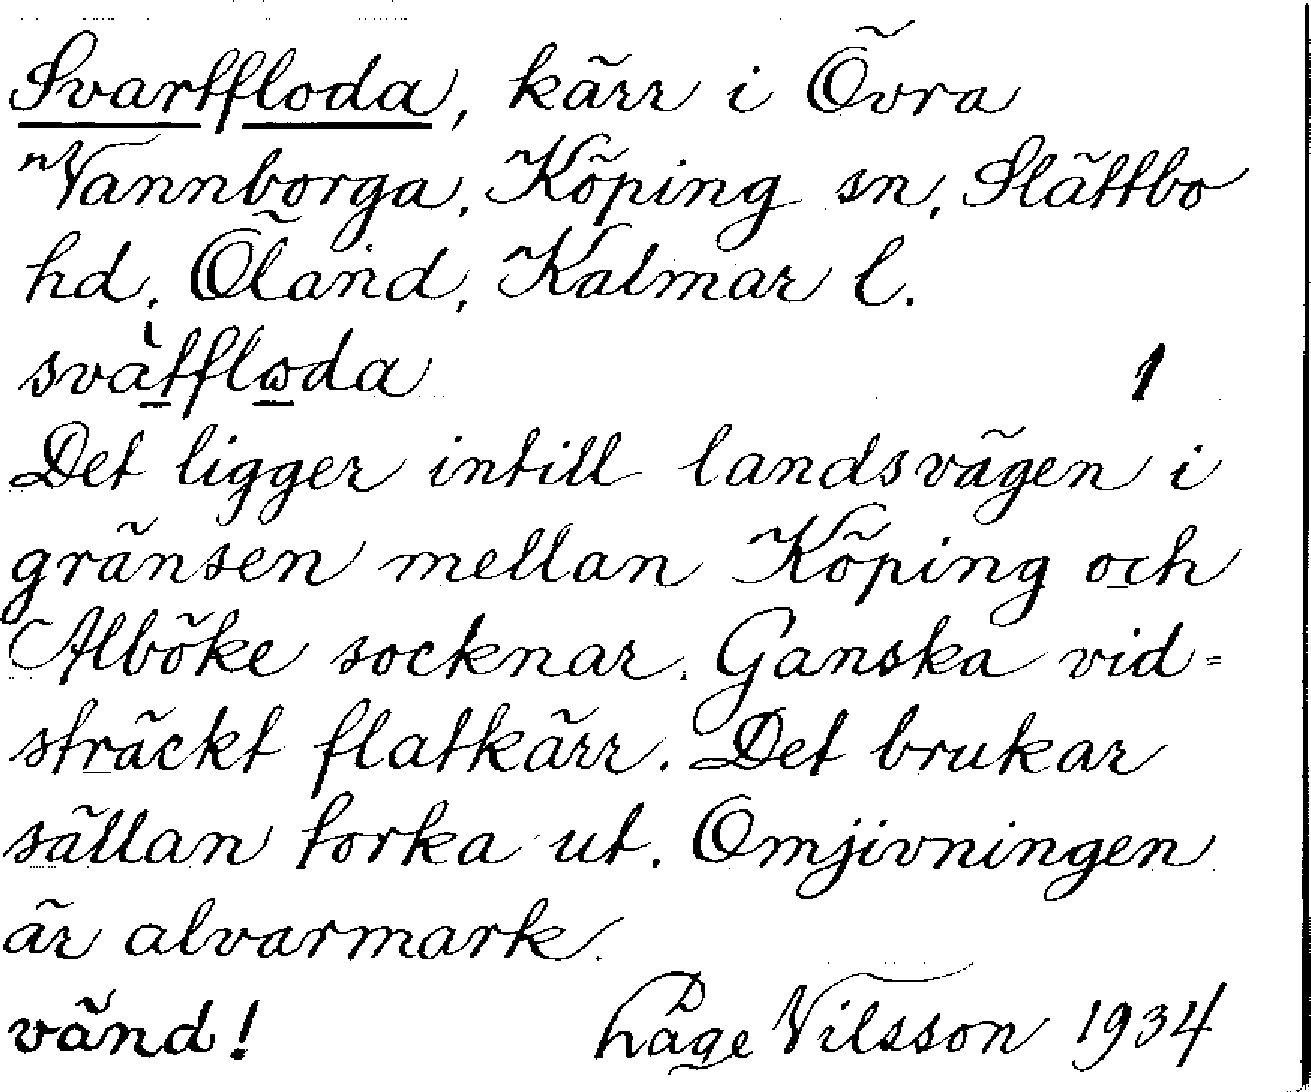 Svartfloda, kärr i Övra
Vannborga, Köping sn, Slättbo
hd, Öland, Kalmar l.
svàtfloda 1
Det ligger intill landsvägen i
gränsen mellan Köping och
Alböke socknar. Ganska vid=
sträckt flatkärr. Det brukar
sällan torka ut. Omjivningen
är alvarmark.
vänd! Håge Nilsson 1934